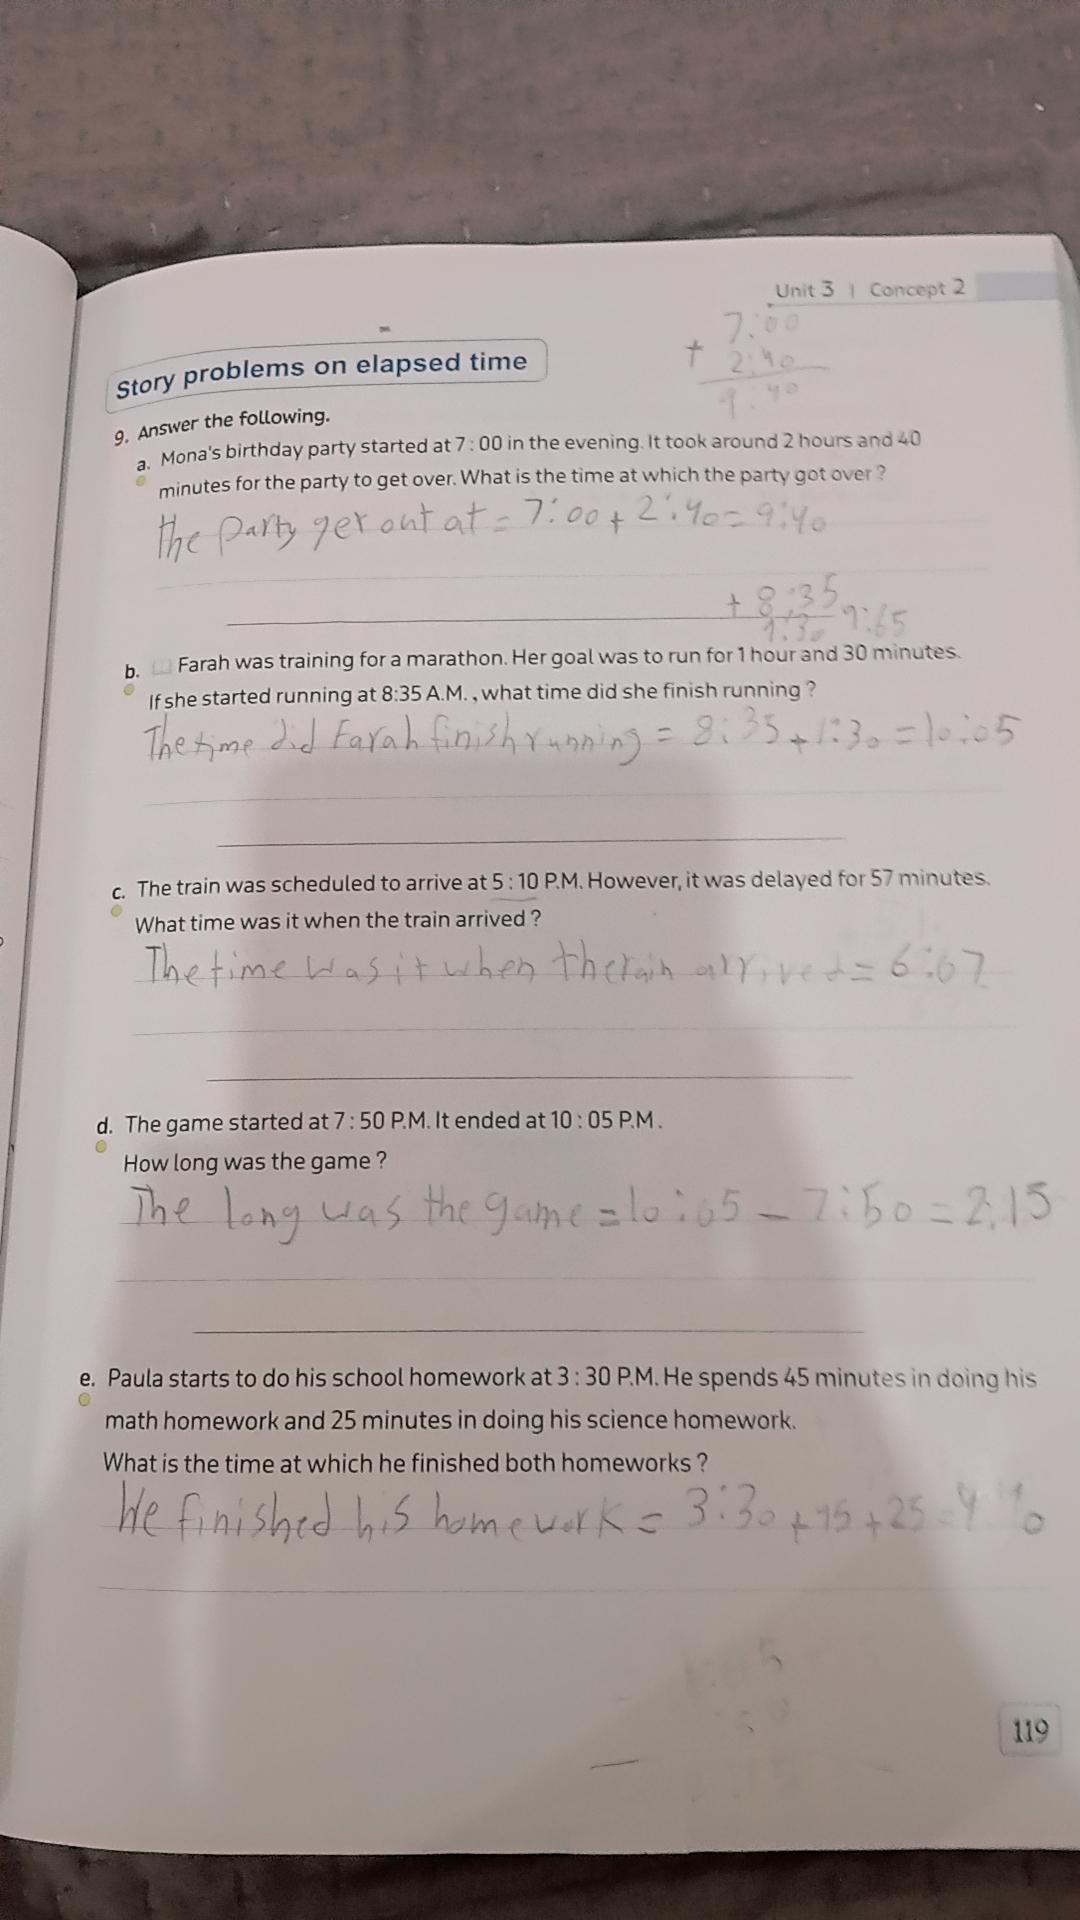 Unit 3 | Concept 2
7:00
+ 2:40
9:40
Story problems on elapsed time
9. Answer the following.
a. Mona's birthday party started at 7 : 00 in the evening. It took around 2 hours and 40
minutes for the party to get over. What is the time at which the party got over ?
the party get out at = 7:00 + 2:40 = 9:40
+ 8:35
1:30 9:65
b. Farah was training for a marathon. Her goal was to run for 1 hour and 30 minutes.
If she started running at 8:35 A.M. , what time did she finish running ?
The time did Farah finish running = 8:35 + 1:30 = 10:05
c. The train was scheduled to arrive at 5 : 10 P.M. However, it was delayed for 57 minutes.
What time was it when the train arrived ?
The time was it when the rain arrived = 6:07
d. The game started at 7 : 50 P.M. It ended at 10 : 05 P.M.
How long was the game ?
The long was the game = 10:05 - 7:50 = 2.15
e. Paula starts to do his school homework at 3 : 30 P.M. He spends 45 minutes in doing his
math homework and 25 minutes in doing his science homework.
What is the time at which he finished both homeworks ?
He finished his homework = 3:30 + 45 + 25 =
119